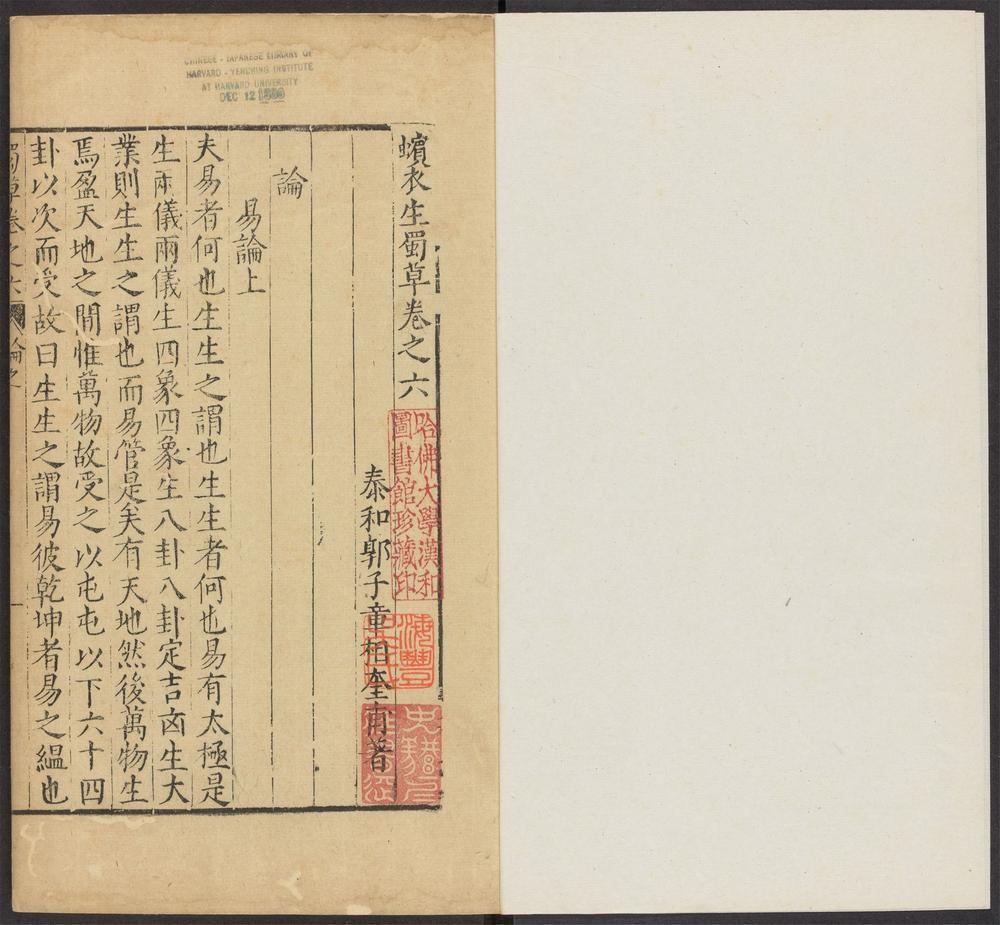 CHINESE - JAPANESE LIBRARY OF
HARVARD - YENCHING INSTITUTE
AT HARVARD UNIVERSITY
DEC 12
蠙衣生蜀草卷之六
哈佛大學漢和
圖書館珍藏印
泰和郭子章相奎甫著
論
易論上
夫易者何也生生之謂也生生者何也易有太極是
生兩儀兩儀生四象四象生八卦八卦定吉凶生大
業則生生之謂也而易管是矣有天地然後萬物生
焉盈天地之間惟萬物故受之以屯屯以下六十四
卦以次而受故曰生生之謂易彼乾坤者易之縕也
蜀草卷之六
論
一